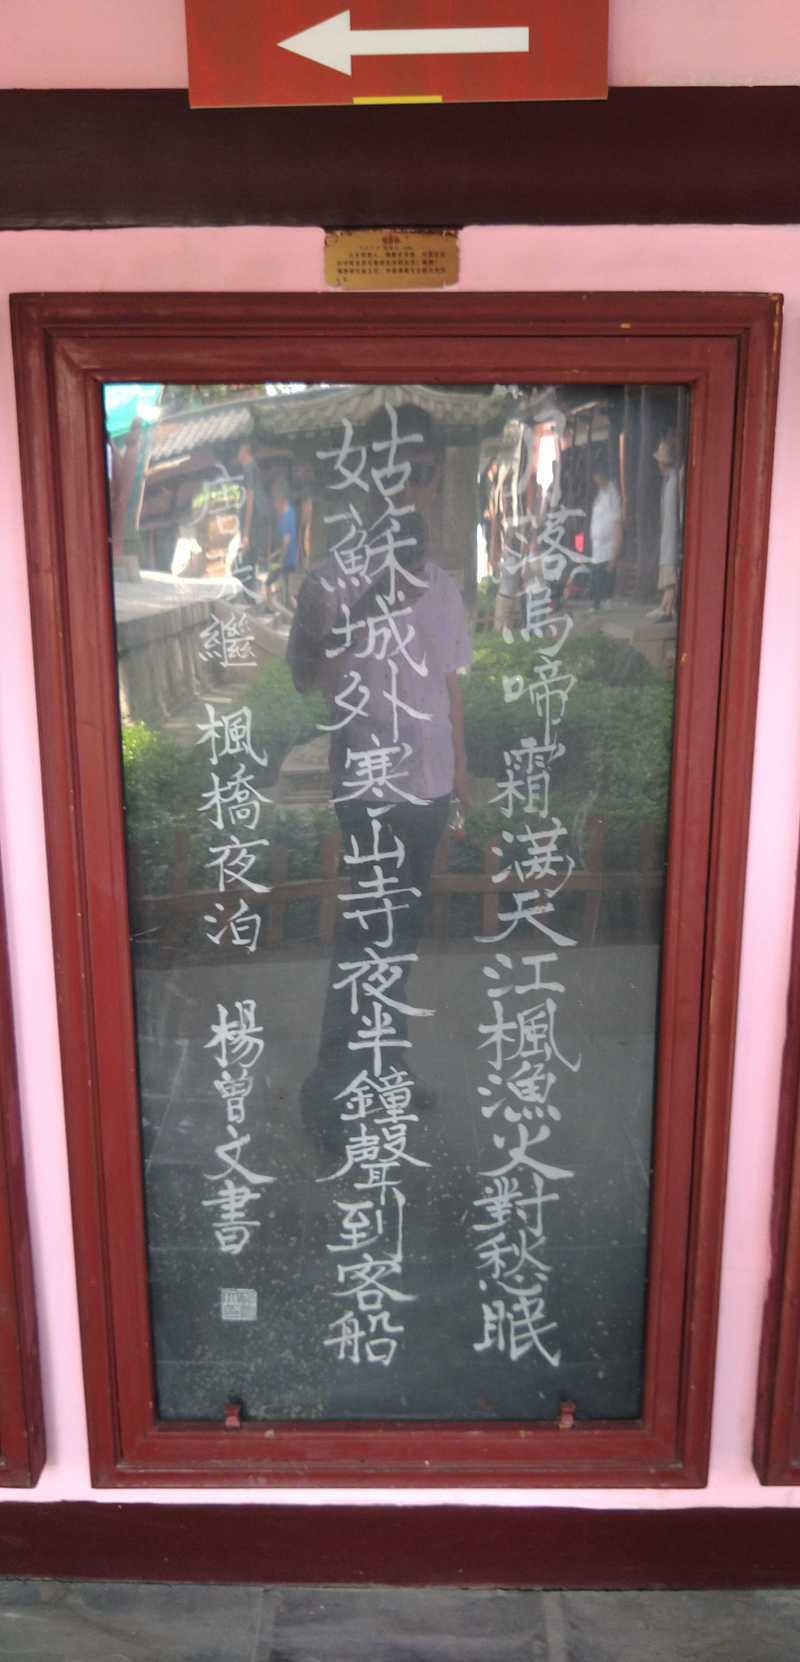 月落烏啼霜滿天江楓漁火對愁眠
姑蘇城外寒山寺夜半鐘聲到客船
唐張繼 楓橋夜泊 楊曾文書